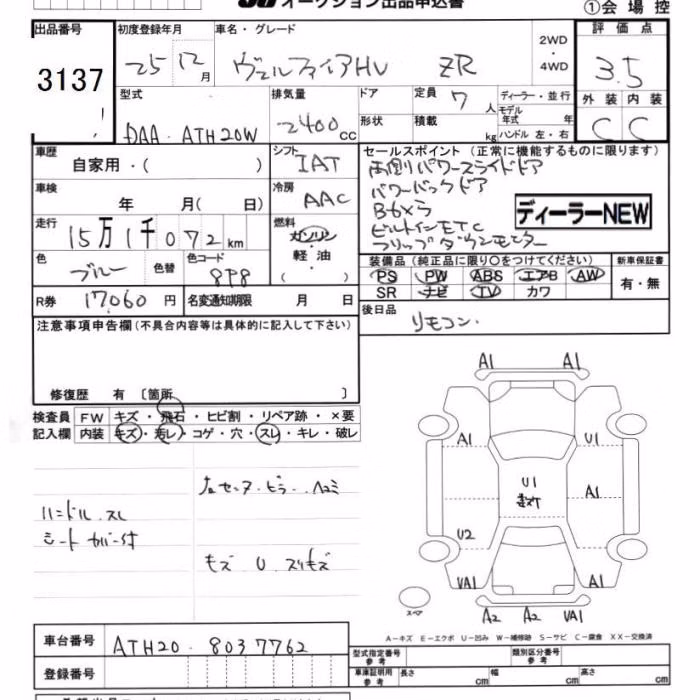 オークション出品申込書
①会場控
出品番号 初度登録年月 車名・グレード 評価点
3137 25 12月 ヴェルファイアHV ZR 2WD・4WD 3.5
型式 排気量 ドア 定員 7人 ディーラー・並行 外装 内装
モデル年式 年
DAA-ATH20W 2400cc 形状 積載 kg ハンドル 左・右 C C
車歴 シフト セールスポイント (正常に機能するものに限ります)
自家用・( ) IAT 両側パワースライドドア
車検 冷房 パワーバックドア
年 月( 日) AAC Bカメラ
走行 燃料 ビルトインETC ディーラーNEW
15万1千072km ガソリン フリップダウンモニター
色 色替 色コード 軽油 装備品 (純正品に限り○をつけてください) 新車保証書
ブルー 8P8 ( ) PS PW ABS エアB AW 有・無
R券 17,060円 名変通知期限 月 日 SR ナビ TV カワ
注意事項申告欄(不具合内容等は具体的に記入して下さい) 後日品 リモコン.
修復歴 有 〔箇所 〕
検査員 FW キズ・飛石・ヒビ割・リペア跡・×要
記入欄 内装 キズ・汚レ・コゲ・穴・スレ・キレ・破レ
ハンドル スレ
シートカバー付
モズ U スリキズ
A1 A1
A1 U1
U1
A1
U2
VA1 A1
スペア
A2 A2 VA1
A-キズ E-エクボ U-凹み W-補修跡 S-サビ C-腐食 XX-交換済
車台番号 ATH20-8037762
登録番号
型式指定番号 参考 類別区分番号 参考
車庫証明用 参考 長さ cm 幅 cm 高さ cm